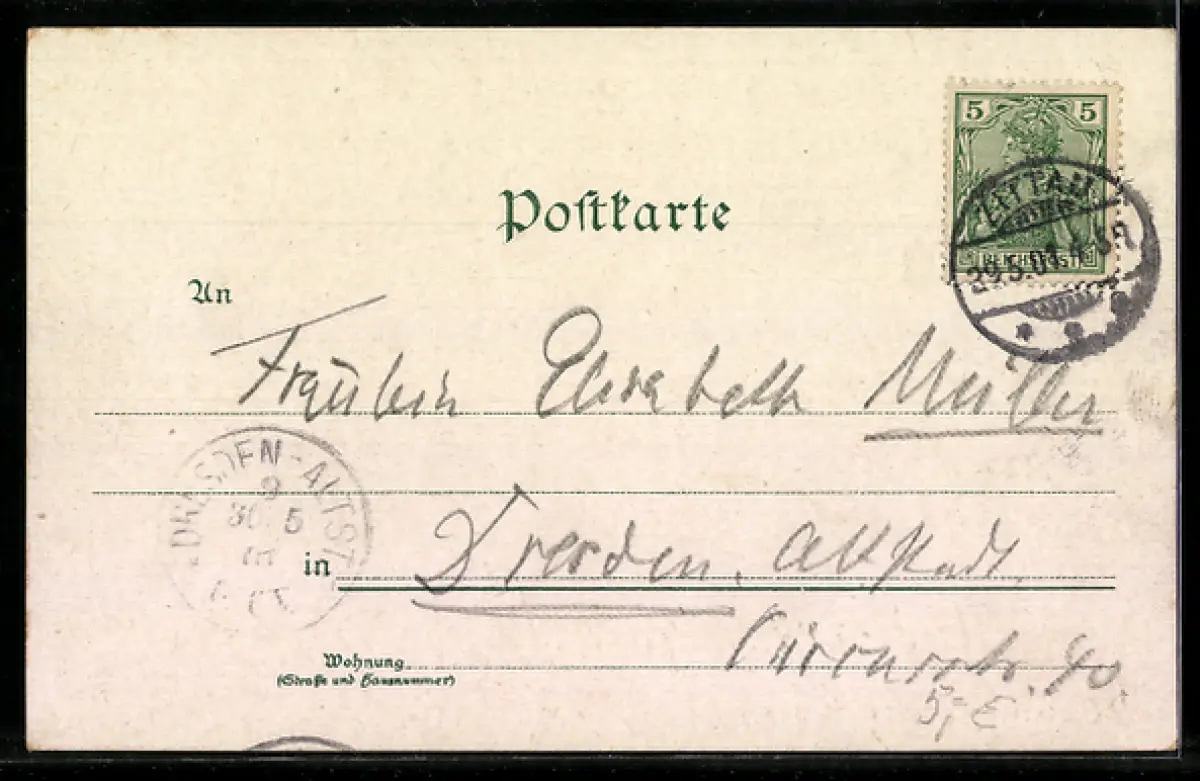 5 5
Postkarte
ZITTAU
29.5.01.4-5N
REICHSPOST
An
Fräulein Elisabeth Müller
DRESDEN-ALTST
30 5
in
Dresden. Altstadt.
Wohnung
(Straße und Hausnummer)
40.
5,- €